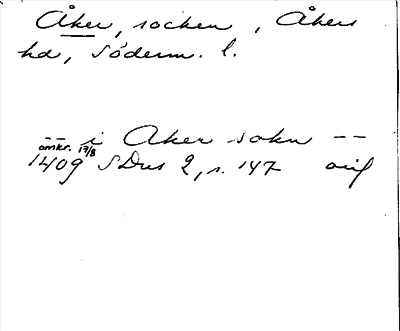 Åker, socken, Åkers
hd, Söderm. l.
-- i Aker sokn --
omkr. 17/8
1409 SDns 2, s. 147 orig